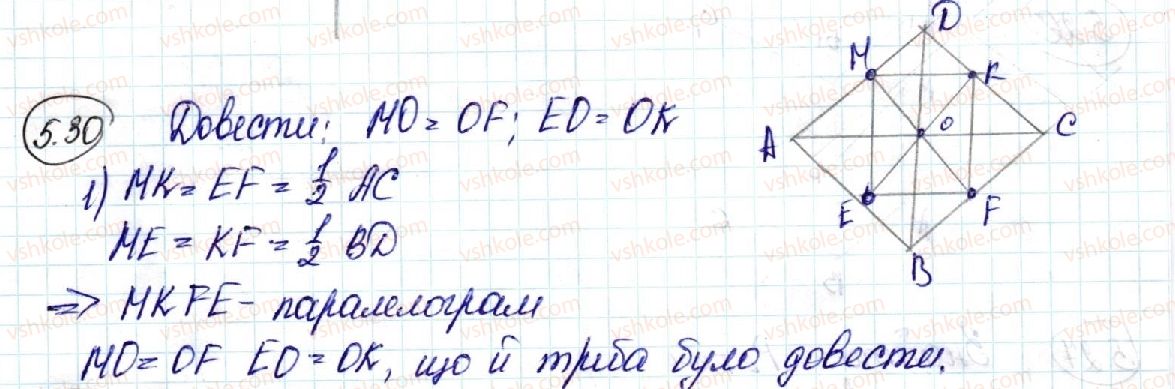 5.30 Довести: MO = OF; EO = OK
1) MK = EF = 1/2 AC
ME = KF = 1/2 BD
=> MKFE - паралелограм
MO = OF EO = OK, що й треба було довести.
D
M K
A O C
E F
B
vshkole.com